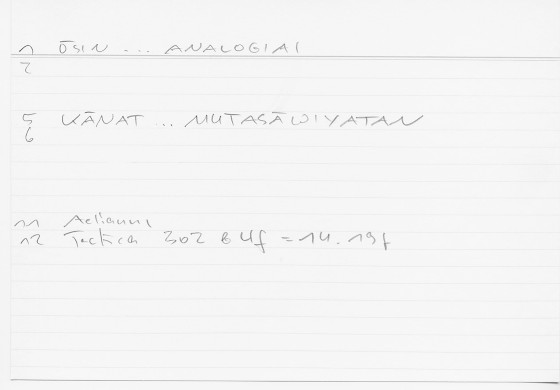 1 ŌSIN ... ANALOGIAI
2
5 KĀNAT .. MUTASĀWIYATAN
6
11 Aelianus
12 Tactica 302 B 4f = 14.19f